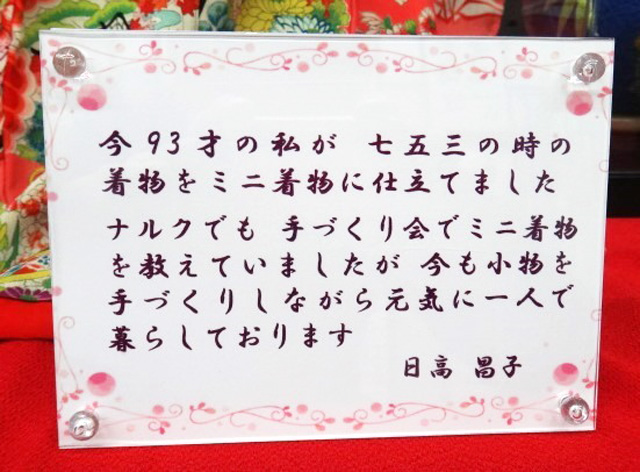 今93才の私が 七五三の時の
着物をミニ着物に仕立てました
ナルクでも 手づくり会でミニ着物
を教えていましたが 今も小物を
手づくりしながら元気に一人で
暮らしております
日高 昌子